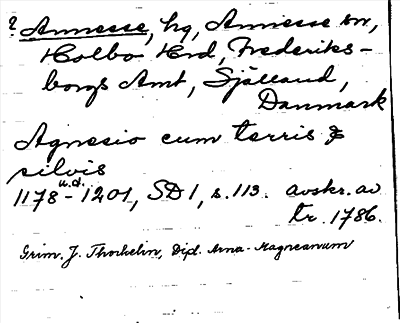 ? Annesse, hg, Annesse sn,
Holbo Hrd, Frederiks-
borgs Amt, Sjælland,
Danmark
Agnesio cum terris &
silvis
1178 u.å. - 1201, SD 1, s. 113. avskr. av
tr. 1786.
Grim. J. Thorkelin, Dipl. Arna-Magneanum